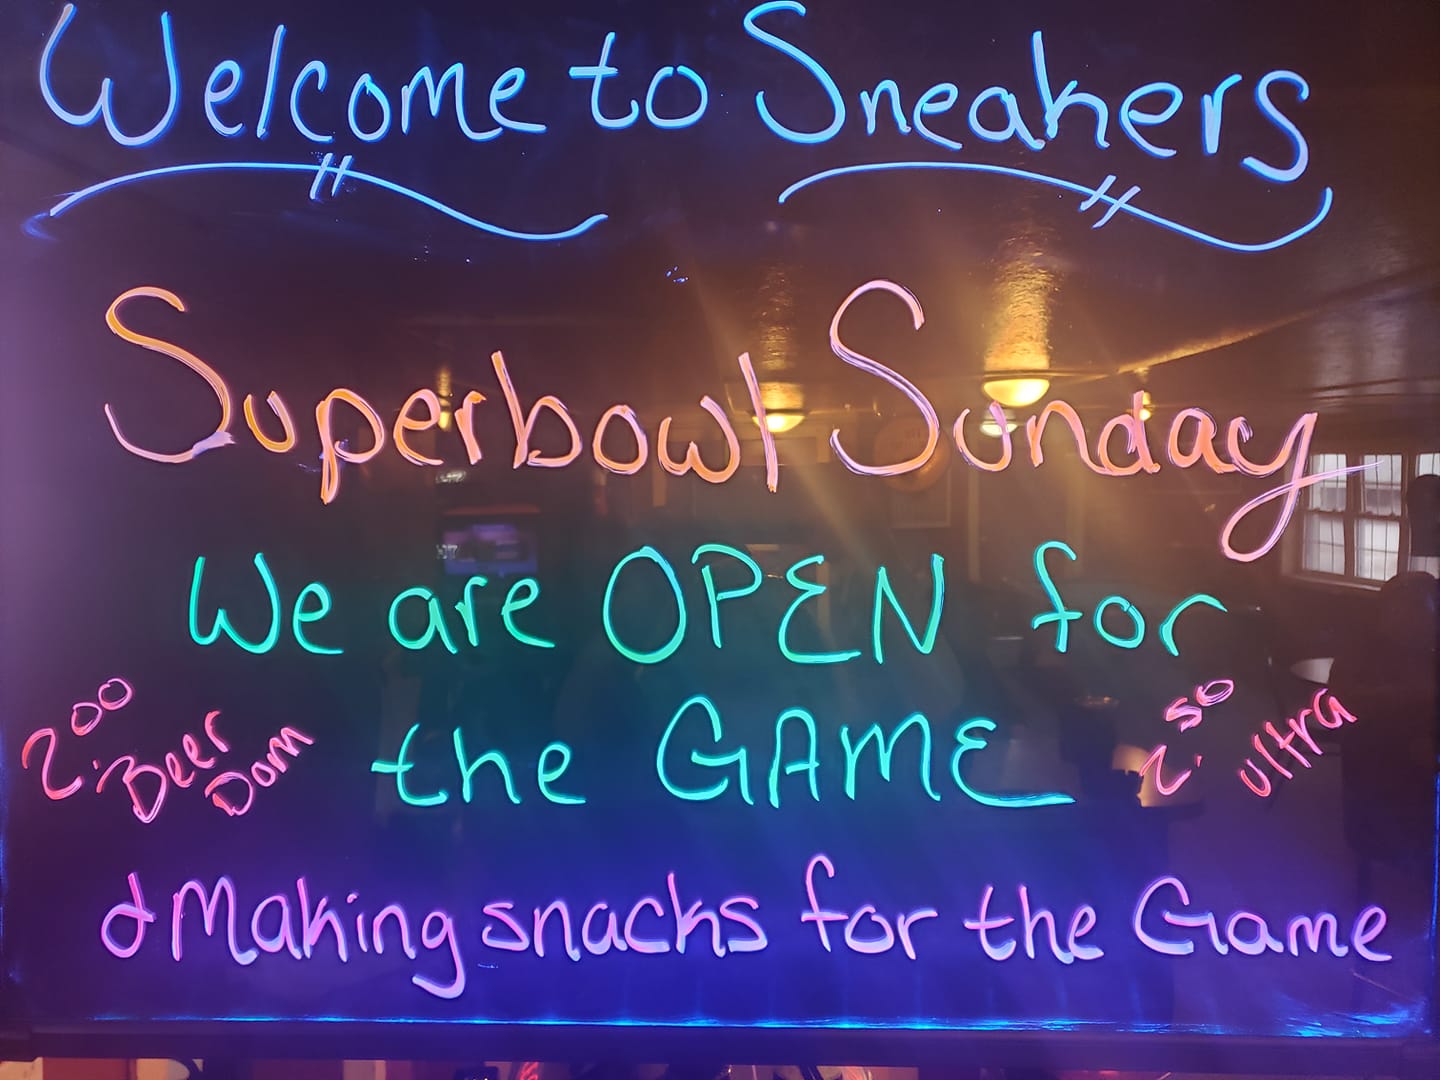 Welcome to Sneakers
Superbowl Sunday
We are OPEN for
the GAME
2.00
Beer
Dom
2.50
ultra
& Making snacks for the Game